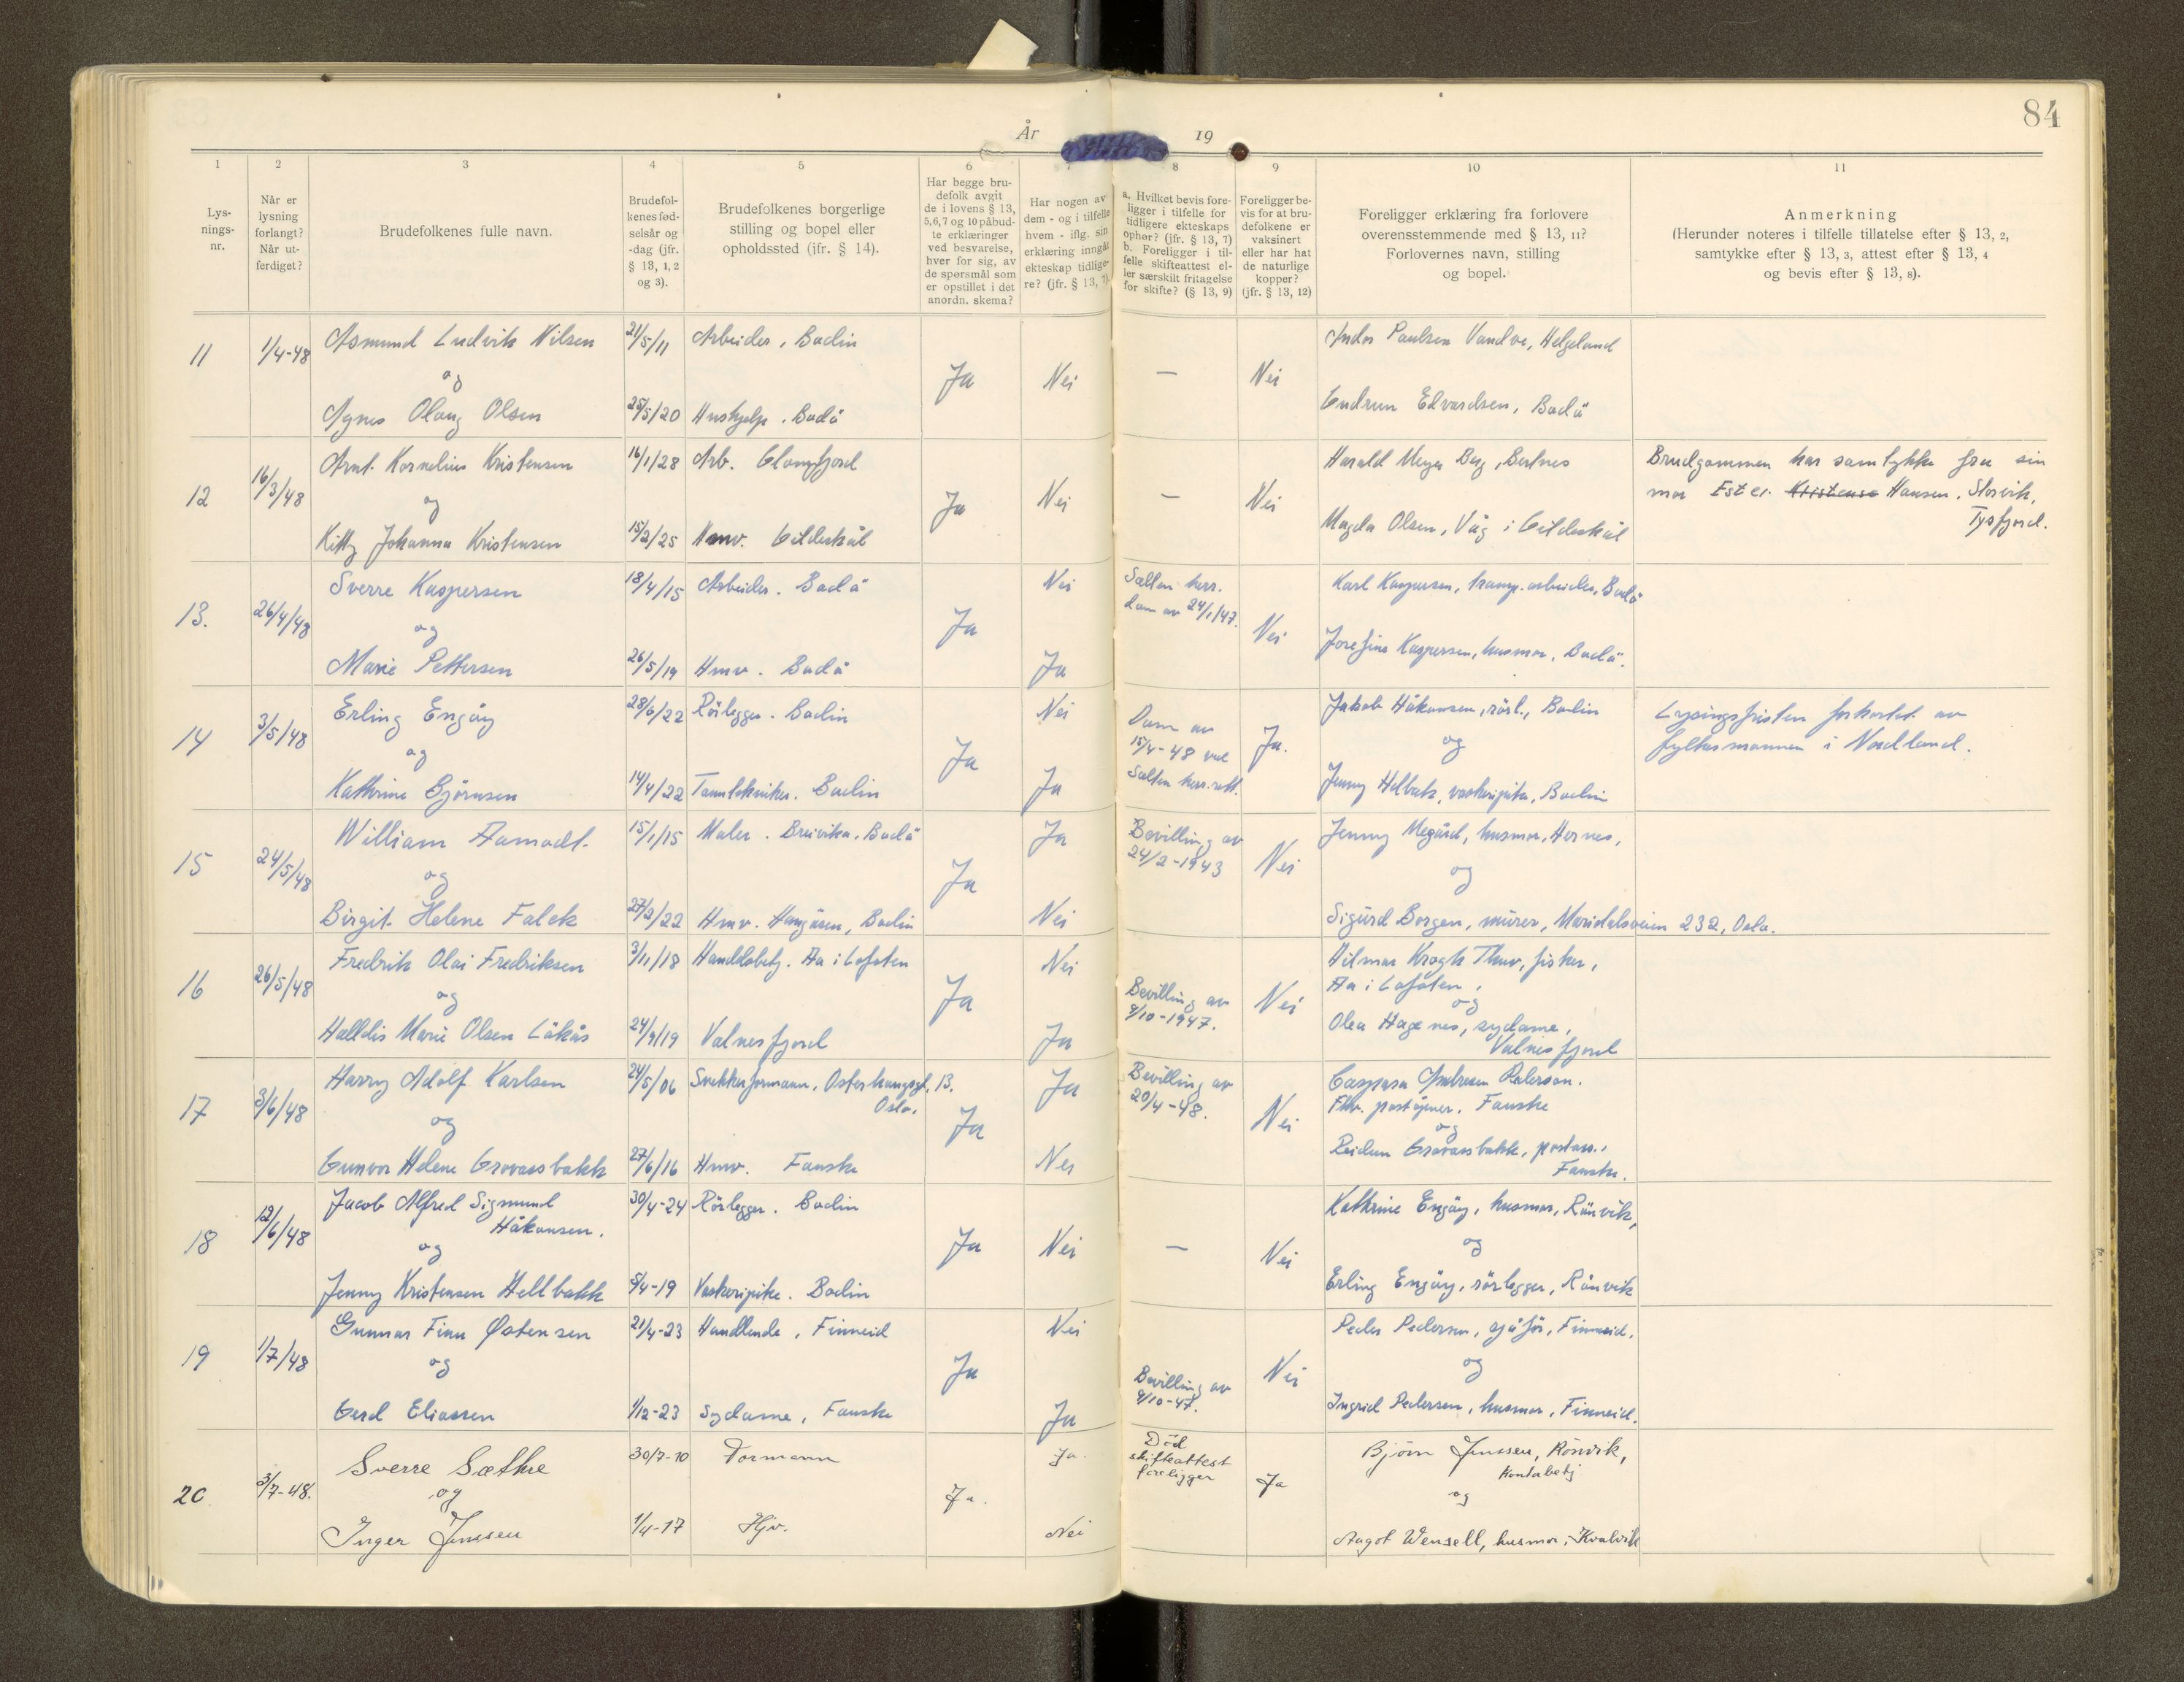 84
År 19
1 2 3 4 5 6 7 8 9 10 11
Lys-
nings-
nr.
Når er
lysning
forlangt?
Når ut-
ferdiget?
Brudefolkenes fulle navn.
Brudefol-
kenes fød-
selsår og
-dag (jfr.
§ 13, 1, 2
og 3).
Brudefolkenes borgerlige
stilling og bopel eller
opholdssted (jfr. § 14).
Har begge bru-
defolk avgit
de i lovens § 13,
5,6,7 og 10 påbud-
te erklæringer
ved besvarelse,
hver for sig, av
de spørsmål som
er opstillet i det
anordn. skema?
Har nogen av
dem - og i tilfelle
hvem - iflg. sin
erklæring inngått
ekteskap tidlige-
re? (jfr. § 13, 7)
a. Hvilket bevis fore-
ligger i tilfelle for
tidligere ekteskaps
ophør? (jfr. § 13, 7)
b. Foreligger i til-
felle skifteattest el-
ler særskilt fritagelse
for skifte? (§ 13, 9)
Foreligger be-
vis for at bru-
defolkene er
vaksinert
eller har hat
de naturlige
kopper?
(jfr. § 13, 12)
Foreligger erklæring fra forlovere
overensstemmende med § 13, 11?
Forlovernes navn, stilling
og bopel.
Anmerkning
(Herunder noteres i tilfelle tillatelse efter § 13, 2,
samtykke efter § 13, 3, attest efter § 13, 4
og bevis efter § 13, 8).
11 1/4-48 Asmund Ludvik Nilsen 21/5/11 Arbeider, Bodin
og Ja Nei — Nei
Agnes Olaug Olsen 25/5/20 Hushjelp. Bodö
Andor Paulsen Vandve, Helgeland
Gudrun Edvardsen, Bodö
12 16/3/48 Arnt Kornelius Kristensen 16/1/28 Arb. Glomfjord
og Ja Nei — Nei
Kitty Johanna Kristensen 15/2/25 Hmv. Gildeskål
Harald Meyer Berg, Bertnes
Magda Olsen, Våg i Gildeskål
Brudgommen har samtykke fra sin
mor Ester Kristense Hansen, Storvik,
Tysfjord.
13. 26/4/48 Sverre Kaspersen 18/4/15 Arbeider. Bodö Nei
og Ja Nei
Marie Pettersen 26/5/19 Hmv. Bodö Ja
Salten herr.
dom av 24/1/47.
Karl Kaspersen, transp.arbeider, Bodö
Josefine Kaspersen, husmor, Bodö.
14 3/5/48 Erling Engöy 28/6/22 Rörlegger. Bodin Nei
og Ja Ja.
Kathrine Björnsen 14/4/22 Tanntekniker. Bodin Ja
Dom av
15/4-48 ved
Salten herr.rett.
Jakob Håkonsen, rörl., Bodin
og
Jenny Helbak, vaskeripike, Bodin
Lysingsfristen forkortet av
fylkesmannen i Nordland.
15 24/5/48 William Aamodt. 15/1/15 Maler. Breivika, Bodö Ja
og Ja Nei
Birgit Helene Falck 27/2/22 Hmv. Haugåsen, Bodin Nei
Bevilling av
24/2-1943
Jenny Megård, husmor, Hernes,
og
Sigurd Borgen, mürer, Maridalsveien 232, Oslo.
16 26/5/48 Fredrik Olai Fredriksen 3/11/18 Handelsbetj. Aa i Lofoten Nei
og Ja Nei
Halldis Marie Olsen Låkås 24/4/19 Valnesfjord Ja
Bevilling av
9/10-1947.
Hilmar Krogh Thuv, fisker,
Aa i Lofoten,
og
Olea Hagenes, sydame,
Valnesfjord
17 3/6/48 Harry Adolf Karlsen 24/5/06 Snekkerformann, Osterhausgt. 13.
Oslo. Ja
og Ja Nei
Gunvor Helene Grovassbakk 27/6/16 Hmv. Fauske Nei
Bevilling av
20/4-48.
poståpner, Fauske
og
Reidun Grovassbakk, postass.,
Fauske.
18 12/6/48 Jacob Alfred Sigmund
Håkonsen. 30/4-24 Rörlegger. Bodin
og Ja Nei — Nei
Jenny Kristensen Hellbakk 5/4-19 Vaskeripike. Bodin
Kathrine Engöy, husmor, Rönvik,
og
Erling Engöy, rörlegger, Rönvik
19 1/7/48 Gunnar Finn Østensen 21/4-23 Handlende, Finneid Nei
og Ja Nei
Gerd Eliassen 1/12-23 Sydame, Fauske Ja
Bevilling av
9/10-47.
Peder Pedersen, sjåför, Finneid.
og
Ingrid Pedersen, husmor, Finneid.
20 3/7-48. Sverre Sæthre 30/7-10 Formann Ja.
og Ja. Ja
Inger Jenssen 1/4-17 Hjv. Nei
Död
skifteattest
foreligger
Björn Jenssen, Rönvik,
Kontorbetj
og
Aagot Wensell, husmor, Kvalvik